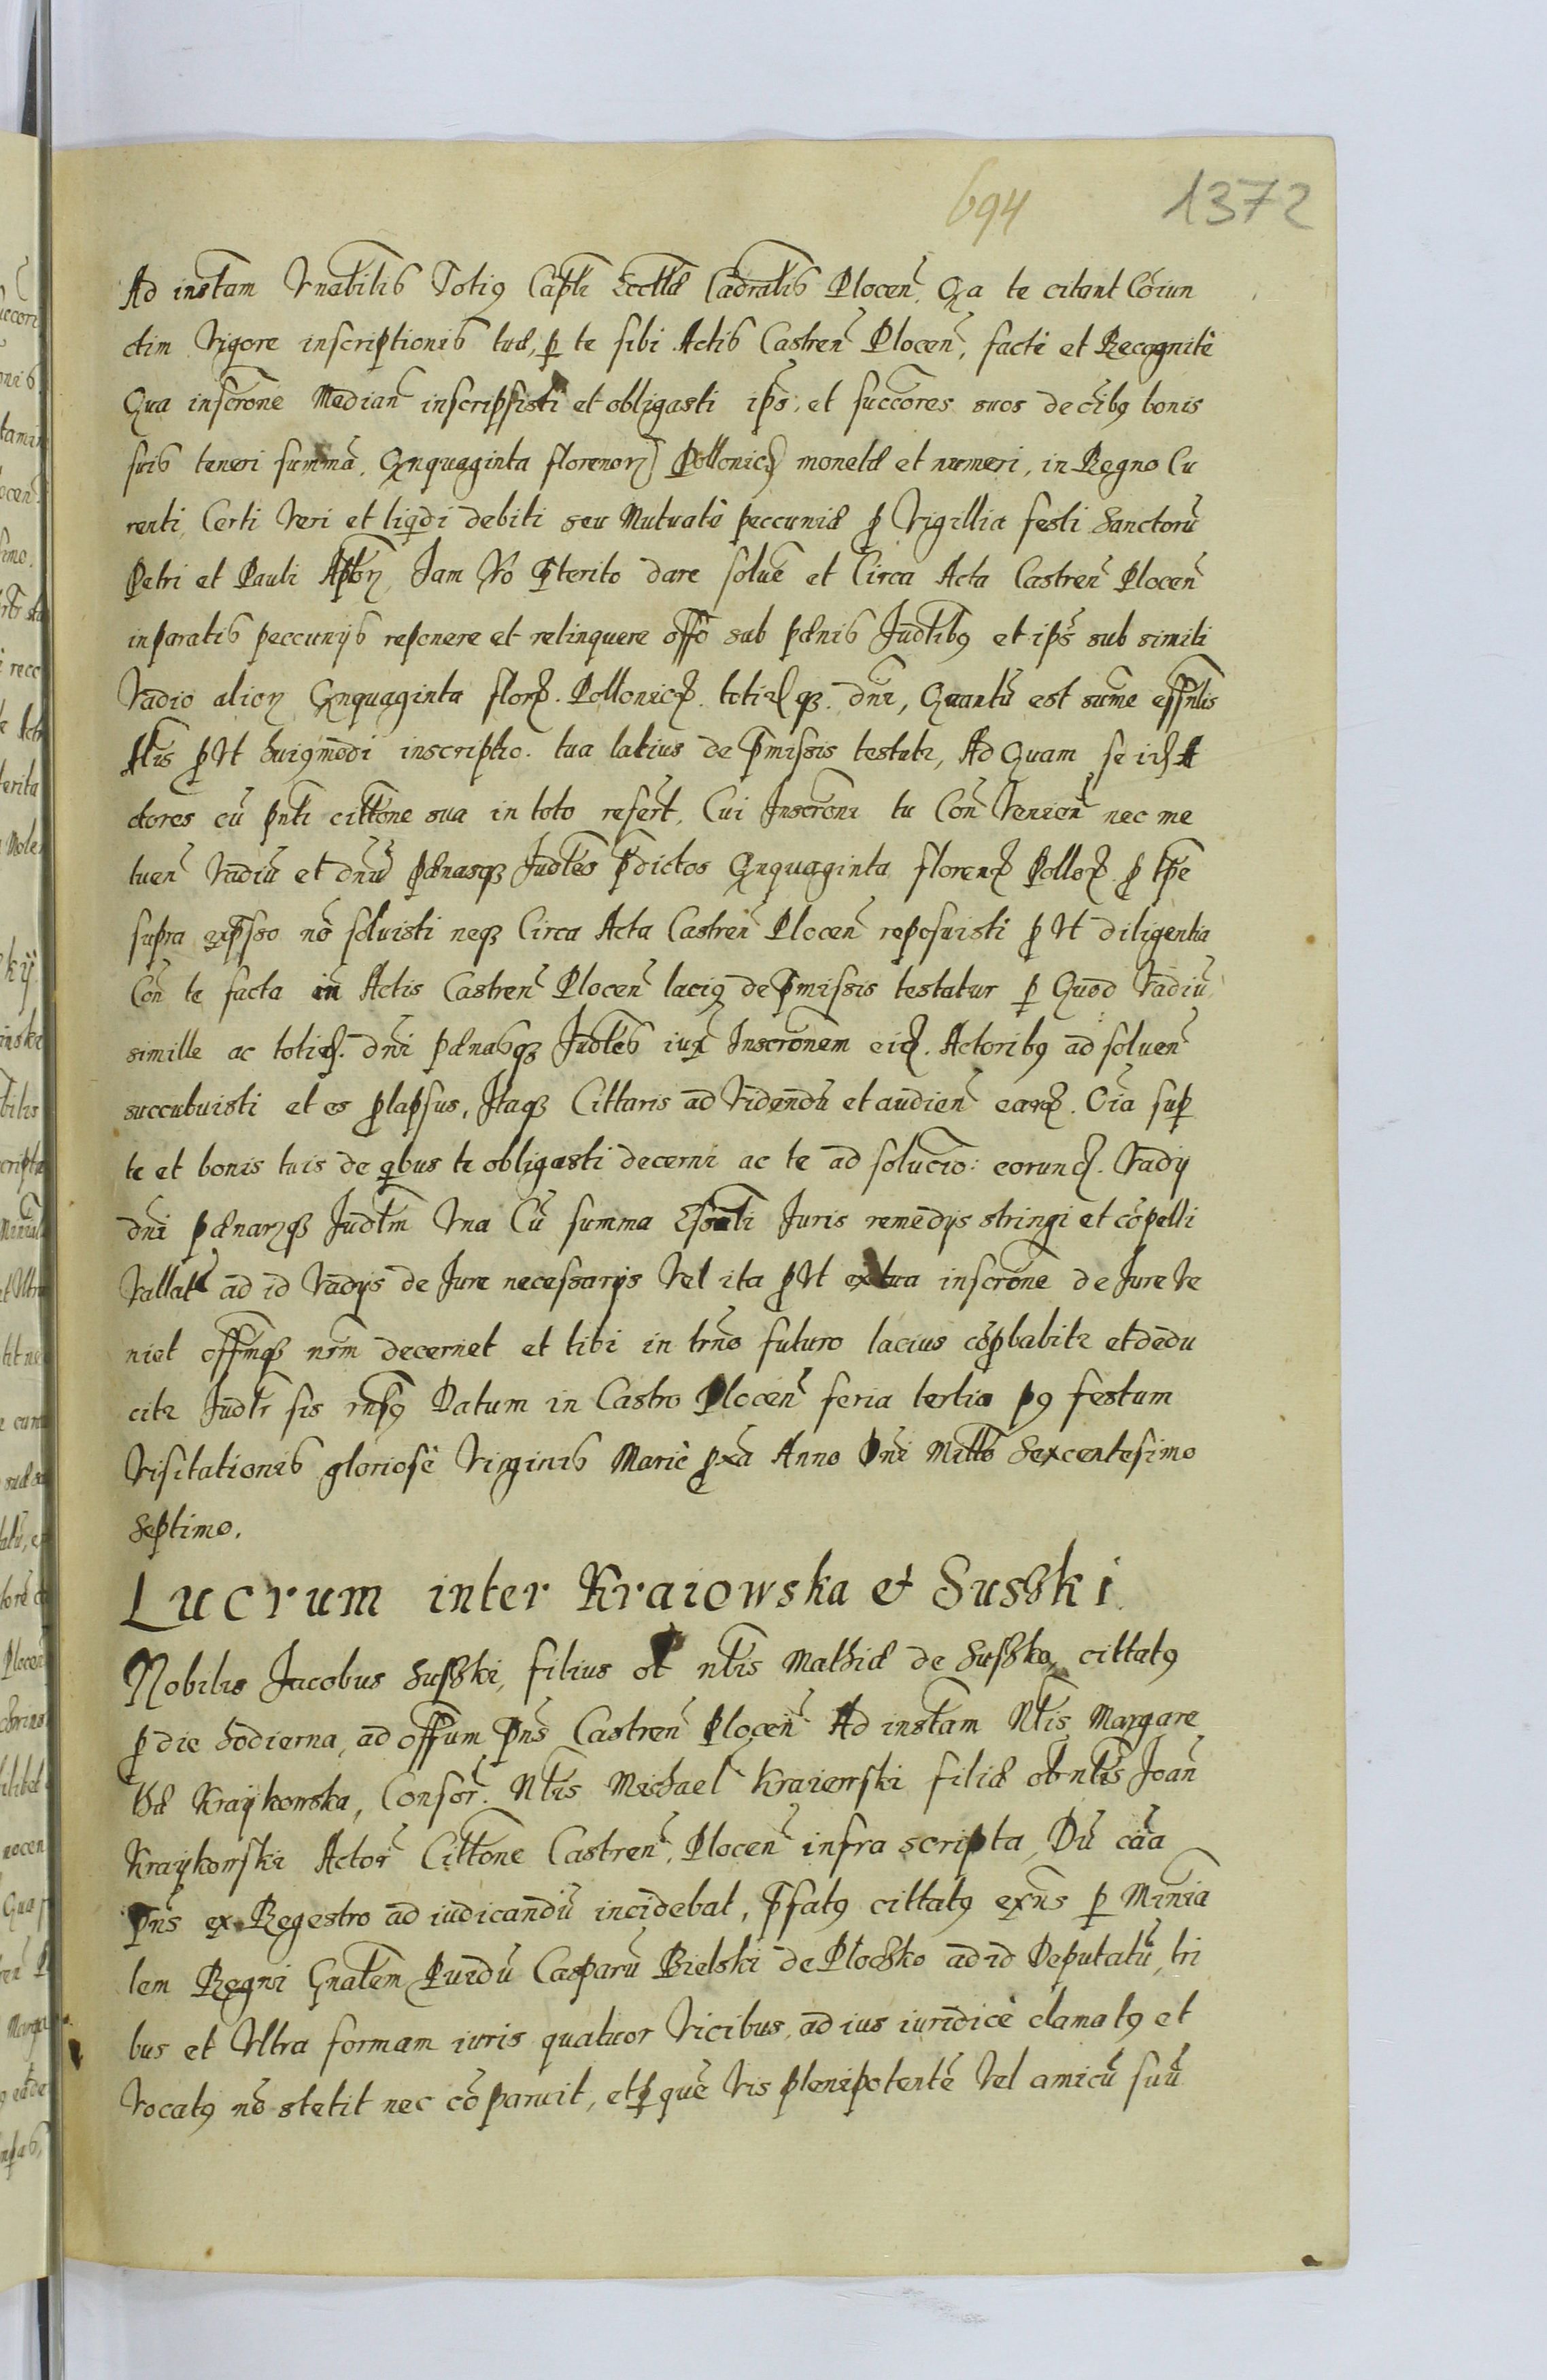 694 1372
Ad instam Vnabilis Totiꝰ Capli Eccłæ Cadralis Plocen̄. Qn̄a te citant Coiun
ctim Vigore inscriptionis tuæ, ꝑ te sibi Actis Castren̄ Plocen̄, facte et Recognite
Qua inscrone Median̄ inscripsisti et obligasti ip̄s, et succores suos de oībꝰ bonis
suis teneri summā, Qnquaginta florenoꝝ Pollonicꝝ monetæ et numeri, in Regno Cu
renti, Certi Veri et liqdi debiti seu Mutuate peccuniæ ꝓ Vigillia festi Sanctorū
Petri et Pauli Apłoꝝ Jam Vo Pterito dare solue et Circa Acta Castren̄ Plocen̄
in paratis peccunijs reponere et relinquere offo sub pænis Judlibꝰ et ip̄s sub simili
Vadio alioꝝ Qnquaginta florꝝ. Pollonicꝝ. totidꝗ. dn̄i, Quantū est sume essn̄lis
Alis ꝓVt huiꝰmodi inscriptio. tua latius de Pmissis testatr, Ad Quam se ijd A
ctores cū pn̄ti cittone sua in toto refert. Cui Inscroni tu Con̄ Venien̄ nec me
tuen̄ Vadiū et dn̄ū pænasqꝫ Judles p̄dictos Qnquaginta florenꝝ Polloꝝ ꝓ tp̄e
supra exp̄sso nō soluisti neqꝫ Circa Acta Castren̄ Plocen̄ reposuisti ꝓ Vt diligentia
Con̄ te facta in Actis Castren̄ Plocen̄ laciꝰ de Pmissis testatur ꝑ Quod Vadiū
simille ac totid. dn̄i pænasqꝫ Judles iux Inscronem eid. Actoribꝰ ad soluen̄
succubuisti et es ꝓlapsus, Itaqꝫ Cittaris ad Videndū et audien̄ earꝝ. Oīa suꝑ
te et bonis tuis de qbus te obligasti decerni ac te ad solucio: eorund. Vadij
dn̄i pænarꝝqꝫ Judlm Vna Cū summa Essn̄li Juris remedijs stringi et cōpelli
Vallatꝰ ad id Vadijs de Jure necessarijs Vel ita ꝓVt ex tua inscrone de Jure Ve
niet offmqꝫ nrm decernet et tibi in trn̄o futuro lacius cōꝓbabitr et dedu
citr Judlr sis rn̄sꝰ Datum in Castro Plocen̄ feria tertia pꝰ festum
Visitationis gloriose Virginis Marie ꝓxa Anno Dn̄i Millo Sexcentesimo
Septimo.
Lucrum inter Kraiowska et Suszki.
Nobilis Jacobus Suszki, filius ol nlis Mathiæ de Suszko, cittatꝰ
ꝓ die hodierna, ad offum pn̄s Castren̄ Plocen̄. Ad instam Nlis Margare
thæ Kraykowska, Consor̄. Nlis Michael Kraiewski filiæ ol nlis Joan̄
Kraykowski Actor̄ Cittone Castren̄, Plocen̄ infra scripta, Dū cāa
Pn̄s ex Regestro ad iudicandū incidebat, Pfatꝰ cittatꝰ exn̄s ꝑ Minia
lem Regni Gnalem Puidū Casparū Bielski de Plochko ad id Deputatū, tri
bus et Vltra formam iuris quatuor Vicibus, ad ius iuridicè clamatꝰ et
Vocatꝰ nō stetit nec cōparuit, et ꝑ quē Vis plenipotentē Vel amicū suū